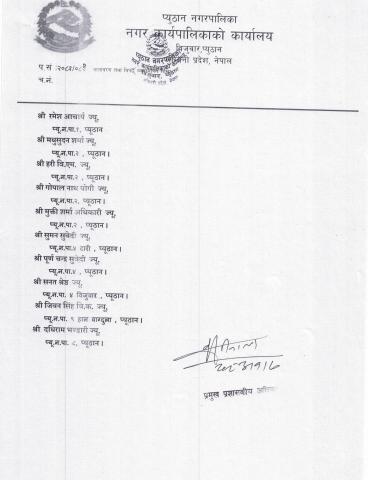 प्यूठान नगरपालिका
नगर कार्यपालिकाको कार्यालय
विजुवार,प्यूठान
प्रदेश, नेपाल
प.सं :२०८१/०८२
च.नं.
श्री रमेश आचार्य ज्यू,
प्यू.न.पा.१, प्यूठान
श्री मधुसुदन शर्मा ज्यू,
प्यू.न.पा.२ , प्यूठान।
श्री हरी वि.एम. ज्यू,
प्यू.न.पा.२ , प्यूठान।
श्री गोपाल नाथ योगी ज्यू,
प्यू.न.पा.२, प्यूठान।
श्री मुक्ती शर्मा अधिकारी ज्यू,
प्यू.न.पा.२ , प्यूठान।
श्री सुमन सुवेदी ज्यू,
प्यू.न.पा.४ दारी , प्यूठान।
श्री पूर्ण चन्द्र सुवेदी ज्यू,
प्यू.न.पा.४ , प्यूठान।
श्री सनत श्रेष्ठ ज्यू,
प्यू.न.पा. ४ विजुवार , प्यूठान।
श्री जिवन सिंह वि.क. ज्यू,
प्यू.न.पा. ९ हाल बाग्दुला , प्यूठान।
श्री दधिराम भण्डारी ज्यू,
प्यू.न.पा. ८, प्यूठान।
प्रमुख प्रशासकीय